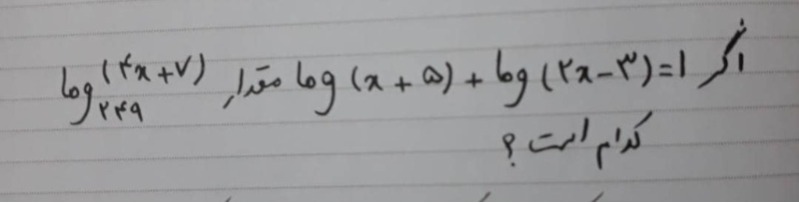 اگر log (x + ۵) + log (۲x − ۳) = ۱ مقدار log₂₄₉ (۴x + ۷)
کدام است ؟